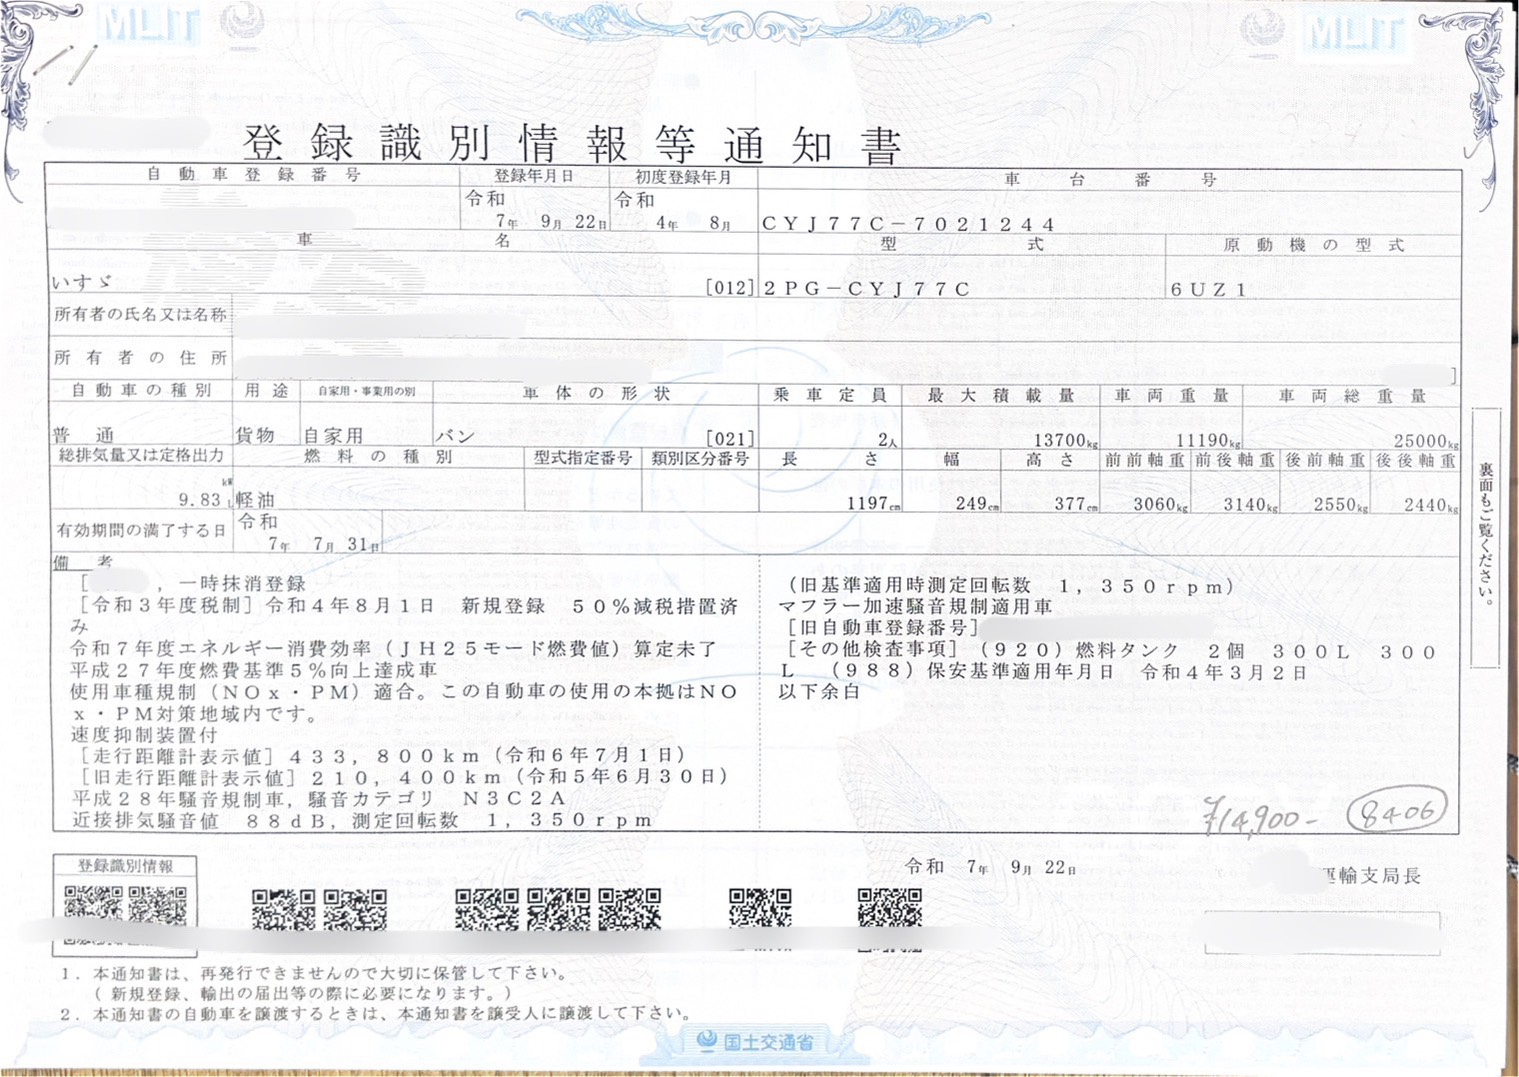 MLIT
MLIT
登録識別情報等通知書
自動車登録番号 登録年月日 初度登録年月 車台番号
令和 令和
7年 9月 22日 4年 8月 CYJ77C-7021244
車名 型式 原動機の型式
いすゞ [012] 2PG-CYJ77C 6UZ1
所有者の氏名又は名称
所有者の住所
]
自動車の種別 用途 自家用・事業用の別 車体の形状 乗車定員 最大積載量 車両重量 車両総重量
普通 貨物 自家用 バン [021] 2人 13700kg 11190kg 25000kg
総排気量又は定格出力 燃料の種別 型式指定番号 類別区分番号 長さ 幅 高さ 前前軸重 前後軸重 後前軸重 後後軸重
kW
9.83 L 軽油 1197cm 249cm 377cm 3060kg 3140kg 2550kg 2440kg
有効期間の満了する日 令和
7年 7月 31日
備考
[ ,一時抹消登録
[令和3年度税制]令和4年8月1日 新規登録 50%減税措置済
み
令和7年度エネルギー消費効率(JH25モード燃費値)算定未了
平成27年度燃費基準5%向上達成車
使用車種規制(NOx・PM)適合。この自動車の使用の本拠はNO
x・PM対策地域内です。
速度抑制装置付
[走行距離計表示値]433,800km(令和6年7月1日)
[旧走行距離計表示値]210,400km(令和5年6月30日)
平成28年騒音規制車,騒音カテゴリ N3C2A
近接排気騒音値 88dB,測定回転数 1,350rpm
(旧基準適用時測定回転数 1,350rpm)
マフラー加速騒音規制適用車
[旧自動車登録番号]
[その他検査事項](920)燃料タンク 2個 300L 300
L (988)保安基準適用年月日 令和4年3月2日
以下余白
¥14,900- 8406
裏面もご覧ください。
登録識別情報
令和 7年 9月 22日
運輸支局長
1.本通知書は、再発行できませんので大切に保管して下さい。
(新規登録、輸出の届出等の際に必要になります。)
2.本通知書の自動車を譲渡するときは、本通知書を譲受人に譲渡して下さい。
国土交通省